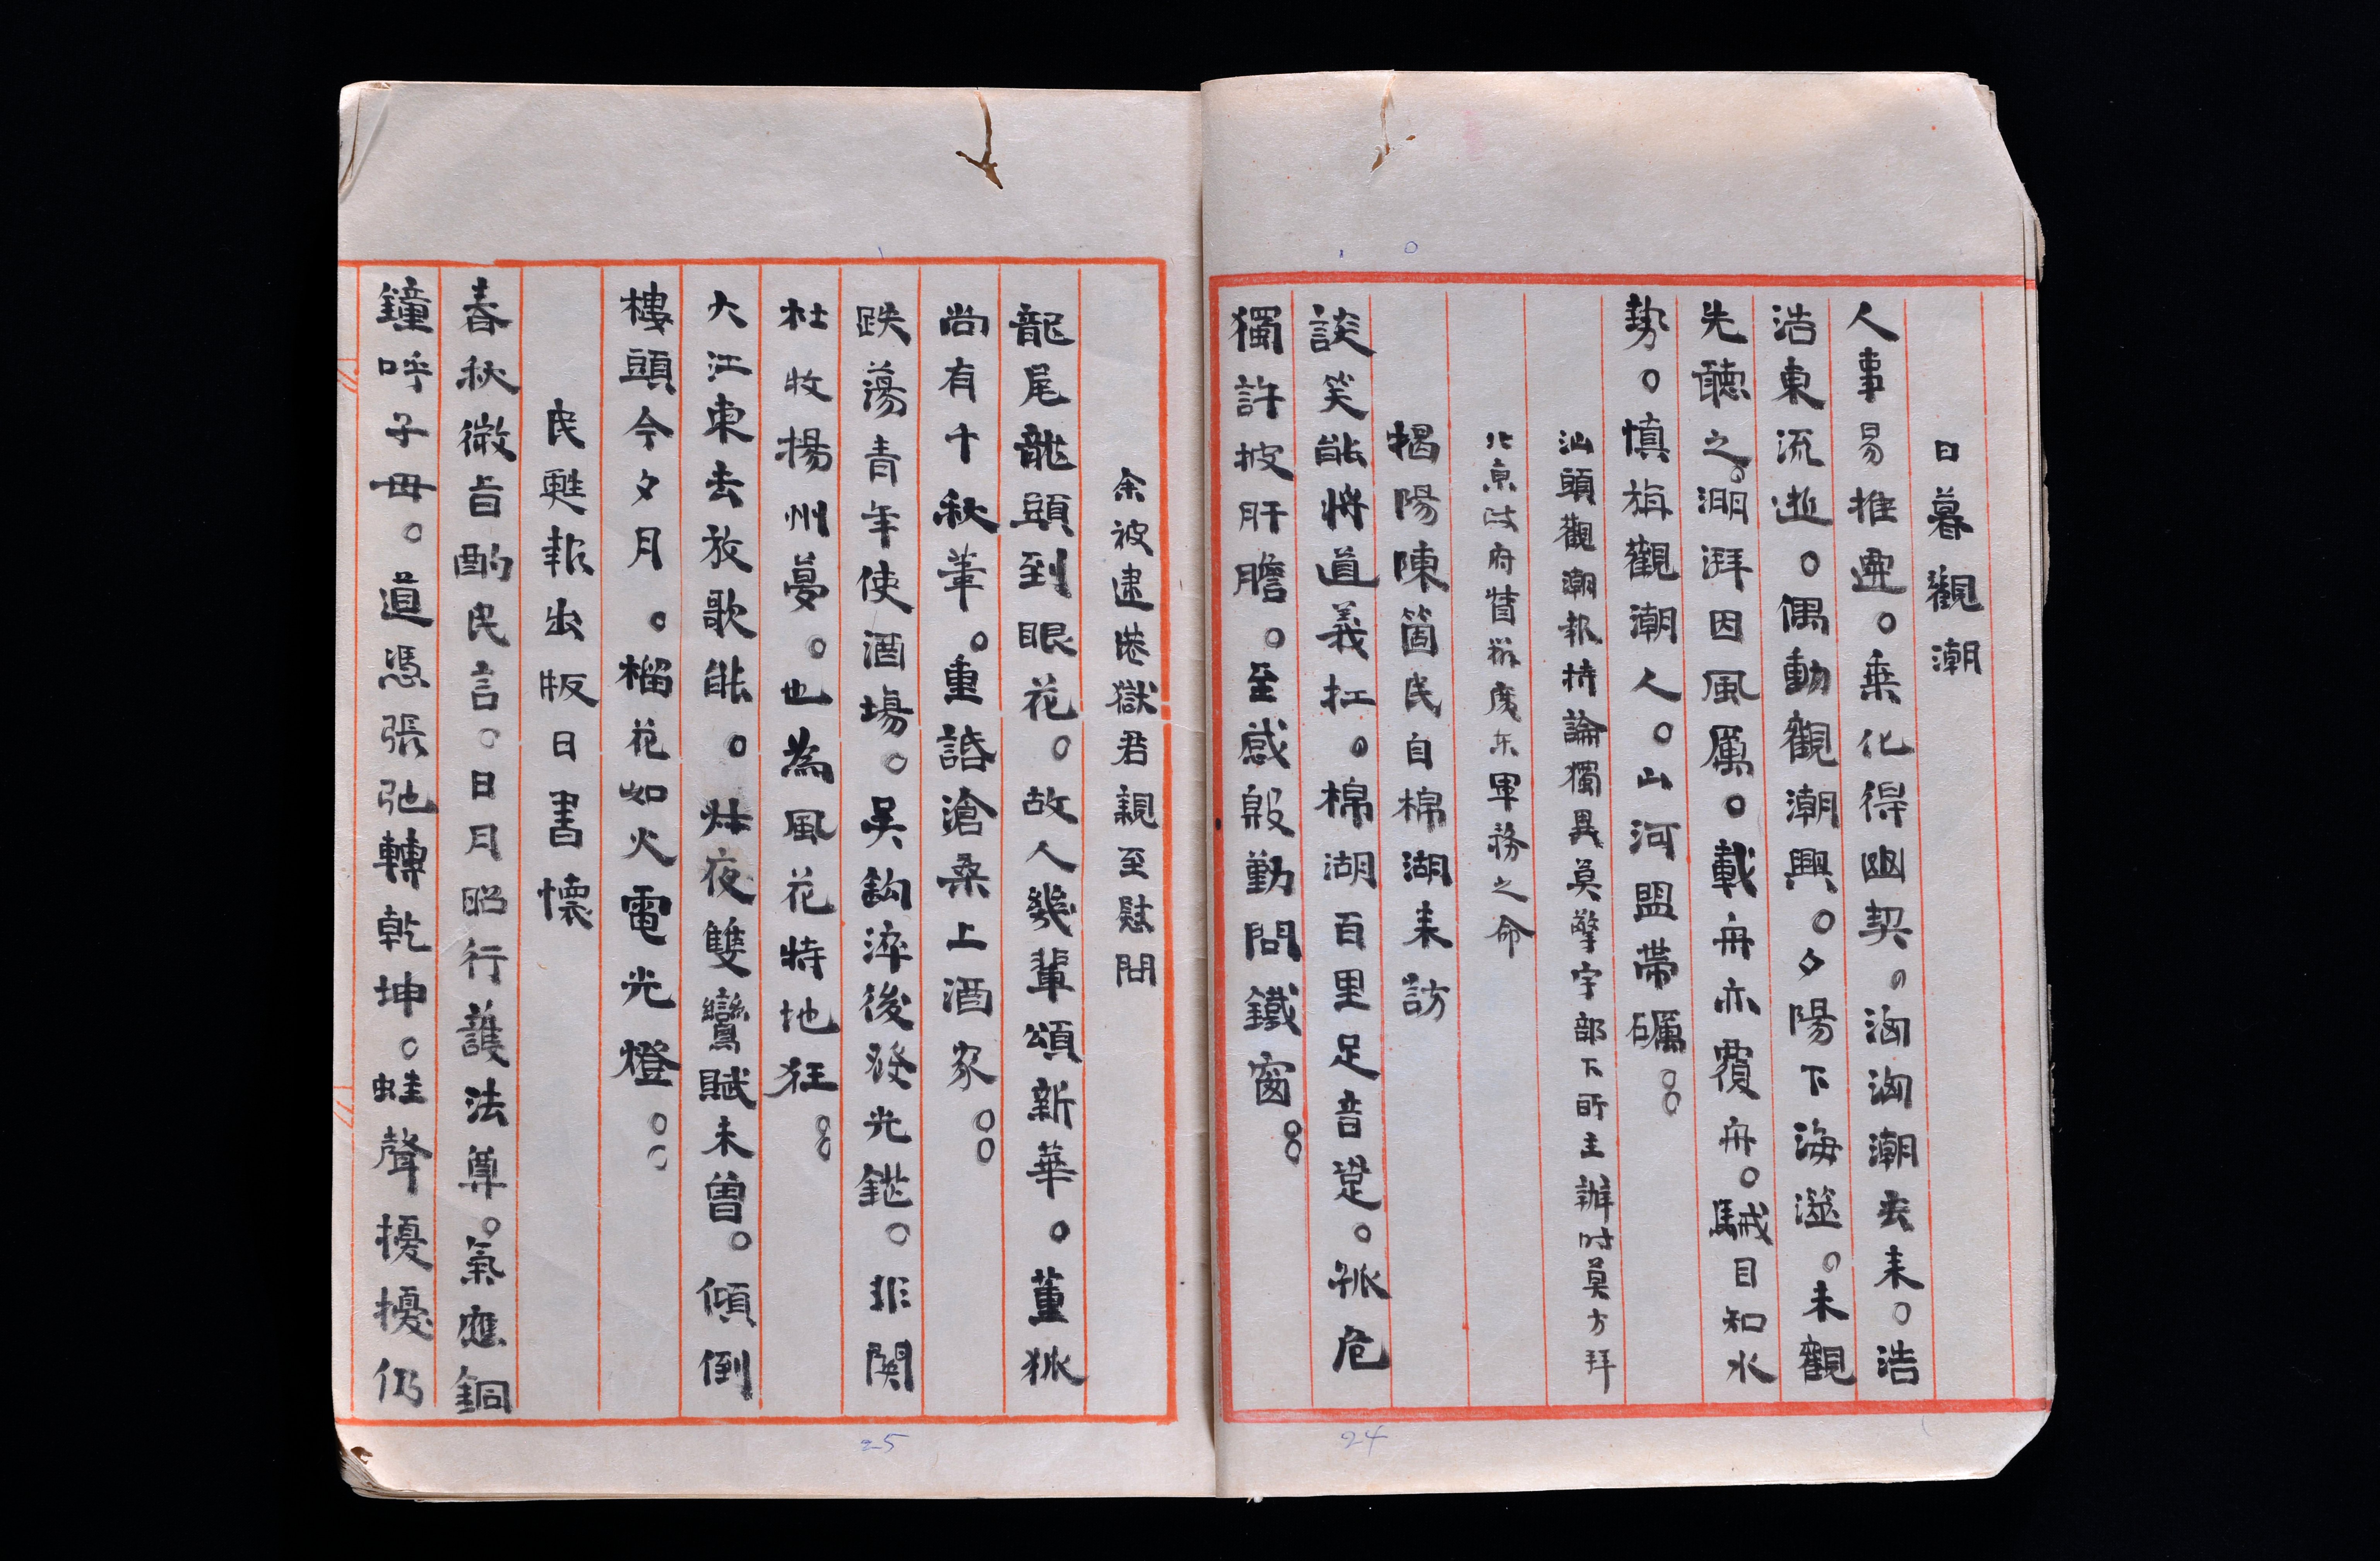 日暮觀潮
人事易推遷。乘化得幽契。洶洶潮去来。浩
浩東流逝。偶動觀潮興。夕陽下海澨。未觀
先聽之。淜湃因風厲。載舟亦覆舟。駴目知水
勢。慎旃觀潮人。山河盟帶礪。。
汕頭觀潮報持論獨異莫擎宇部下所主辦时莫方拜
北京政府督辦廣东軍務之命
揭陽陳箇民自棉湖来訪
談笑能將道義扛。棉湖百里足音跫。孤危
獨許披肝膽。至感殷勤問鐵窗。。
24
余被逮港獄君親至慰問
龍尾龍頭到眼花。故人幾輩頌新華。董狐
尚有千秋筆。重話滄桑上酒家。。
跌蕩青年使酒場。吳鈎淬後發光鋩。非関
杜牧揚州夢。也為風花特地狂。。
大江東去放歌能。夜雙鸞賦未曾。傾倒
樓頭今夕月。榴花如火電光燈。。
民甦報出版日書懷
春秋微旨酌民言。日月昭行護法尊。氣應銅
鐘呼子母。道憑張弛轉乾坤。蛙聲擾擾仍
25